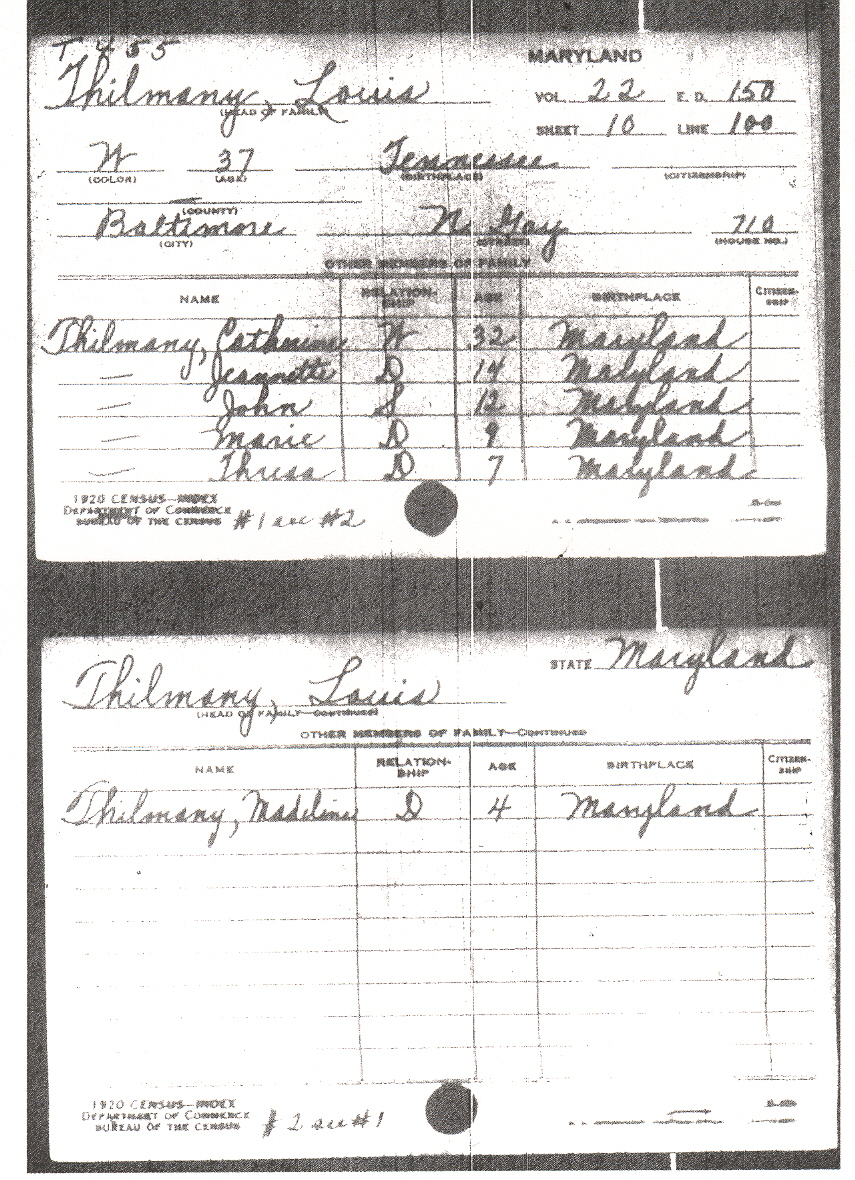 T 455
MARYLAND
Thilmany, Louis
(HEAD OF FAMILY)
VOL. 22 E. D. 150
SHEET 10 LINE 100
W 37 Tennessee
(COLOR) (AGE) (BIRTHPLACE) (CITIZENSHIP)
(COUNTY)
Baltimore N. Gay 710
(CITY) (STREET) (HOUSE NO.)
OTHER MEMBERS OF FAMILY
NAME RELATION-SHIP AGE BIRTHPLACE CITIZEN-SHIP
Thilmany, Catherine W 32 Maryland
— Jeannette D 14 Maryland
— John S 12 Maryland
— Marie D 9 Maryland
— Thress D 7 Maryland
1920 CENSUS—INDEX
DEPARTMENT OF COMMERCE
BUREAU OF THE CENSUS #1 see #2
STATE Maryland
Thilmany, Louis
(HEAD OF FAMILY—CONTINUED)
OTHER MEMBERS OF FAMILY—CONTINUED
NAME RELATION-SHIP AGE BIRTHPLACE CITIZEN-SHIP
Thilmany, Madeline D 4 Maryland
1920 CENSUS—INDEX
DEPARTMENT OF COMMERCE
BUREAU OF THE CENSUS # 2 see #1